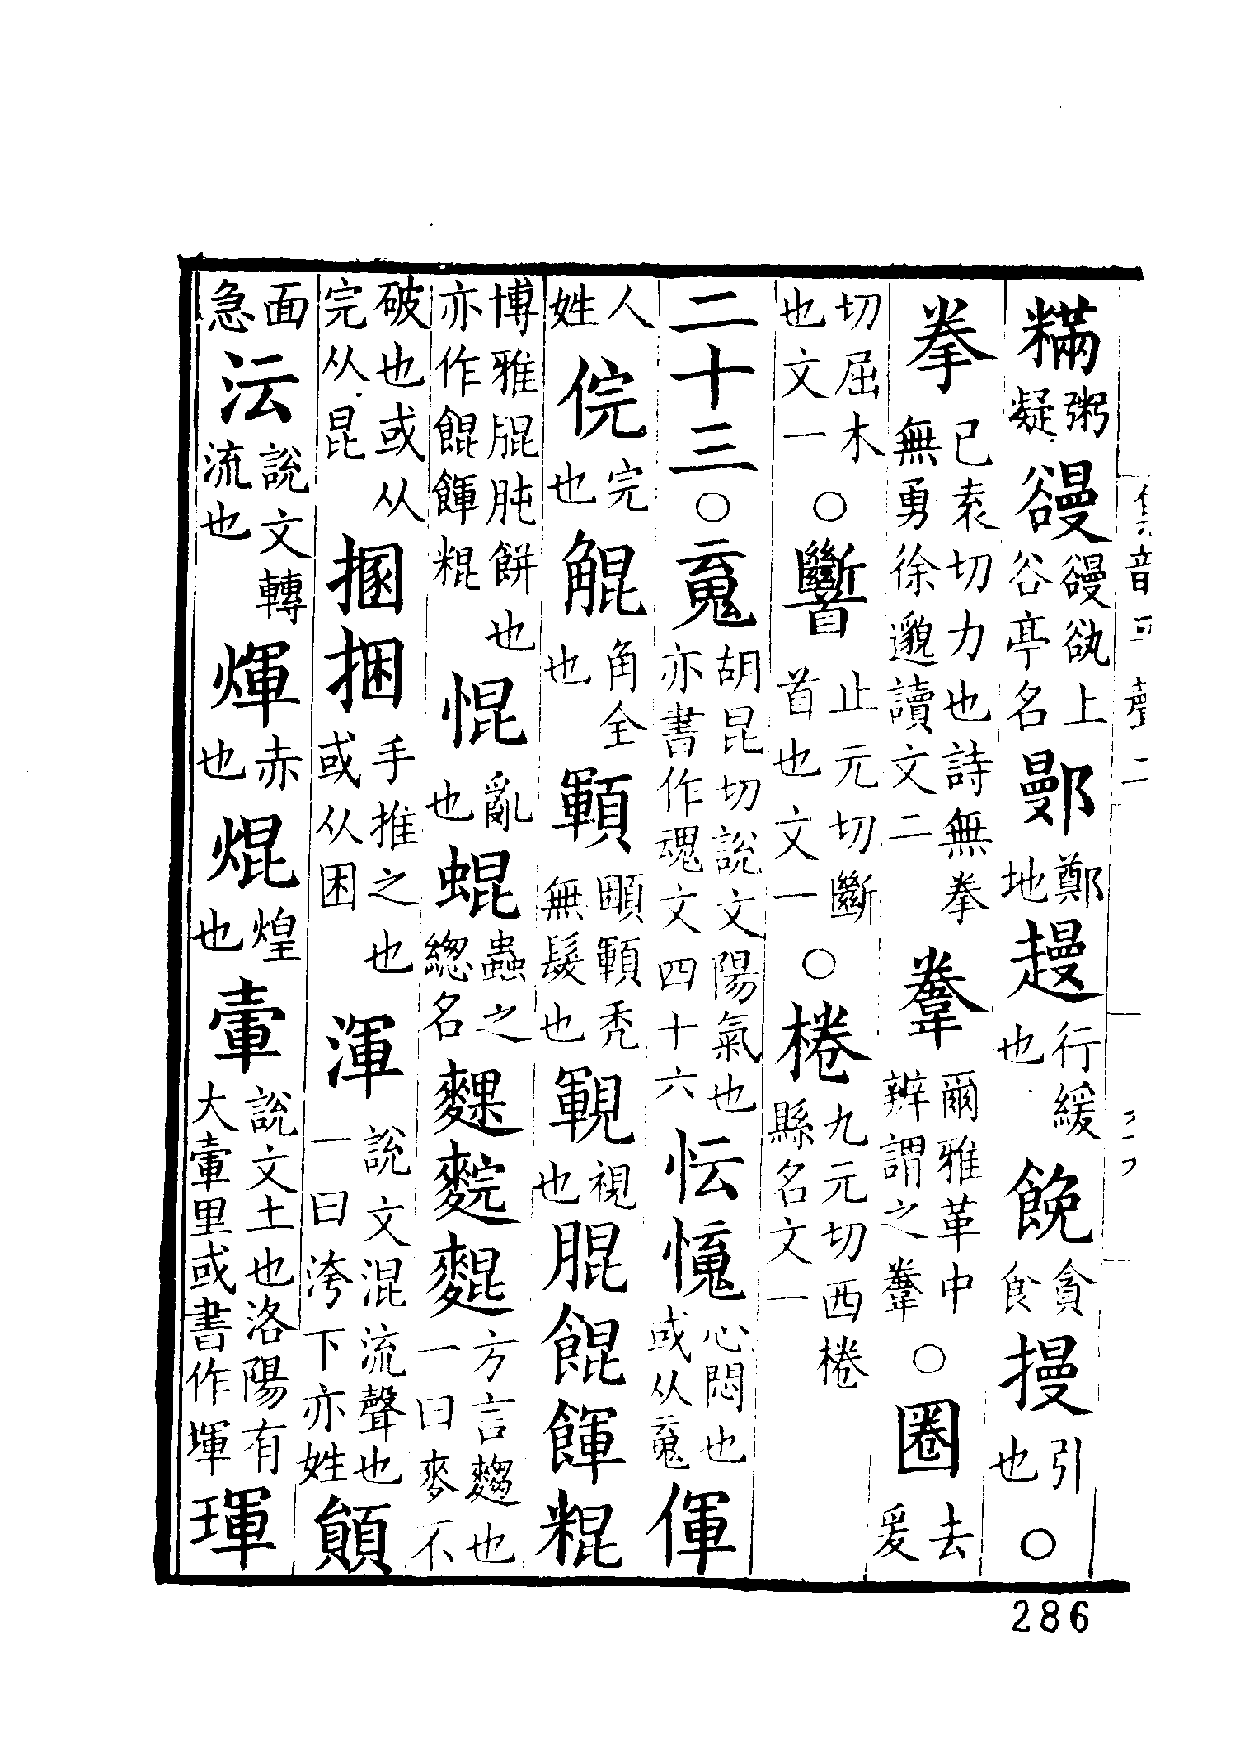 粥凝 谷亭名 鄤鄭地 行緩也 貪食 摱引也○
拳己袁切力也詩無拳無勇徐邈讀文二 韏爾雅革中辨謂之韏○圈去爰
切屈木也文一○ 止元切斷首也文一○棬九元切西棬縣名文一
二十三○䰟胡昆切說文陽氣也亦書作魂文四十六 忶 心悶也或从䰟 㑮
人姓 俒完也 角全也 顐 顐禿無髮也 視也 餛餫
博雅 肫餅也亦作餛餫 惃亂也 蜫蟲之總名 方言麴也一曰麥不
破也或从完从昆 捆手推之也或从困 渾說文混流聲也一曰洿下亦姓
面急 沄說文轉流也 煇赤也 焜煌也 說文土也洛陽有大 里或書作堚 琿
286